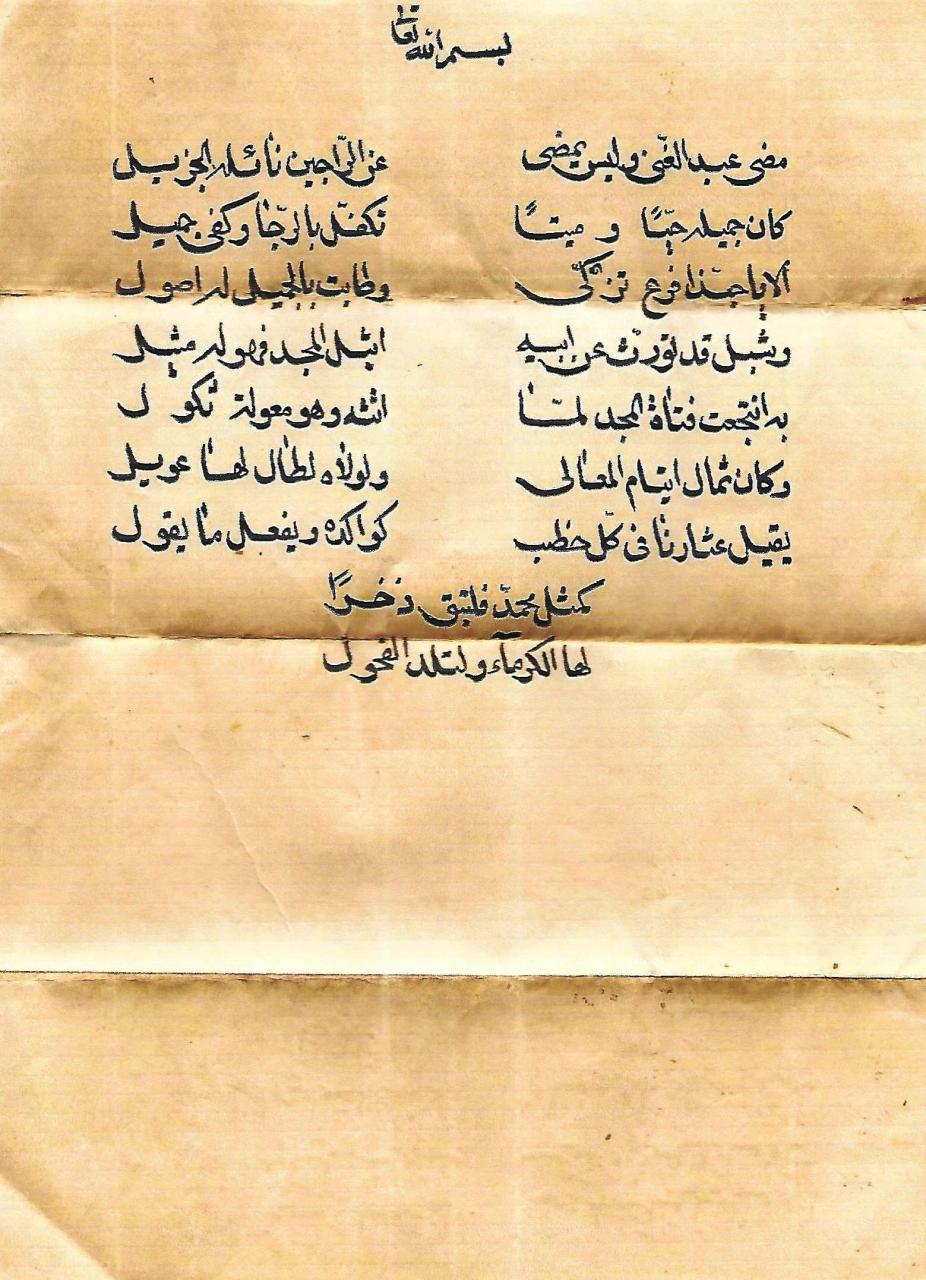 بسم الله تعالى
مضى عبد الغنّى وليس يمضى عن الرّاجين نائله الجزيل
كان جميله حيّا و ميتًا تكفّل بالرّجا وكفى جميل
ألا يا حبّذا فرع تزكّى وطابت بالجميل له اصول
وشبل قد تورث عن ابيه اثيل المجد فهو له مثيل
به انتجعت فتاة المجد لمّا اتته وهو معولة ثكول
وكان ثمال ايتام المعالى ولولاه لطال لها عويل
يقيل عثارنا فى كل خطب كوالده ويفعل ما يقول
كمثل محمدّ فلتبق ذخرًا
لها الكرمآء ولتلد الفحول